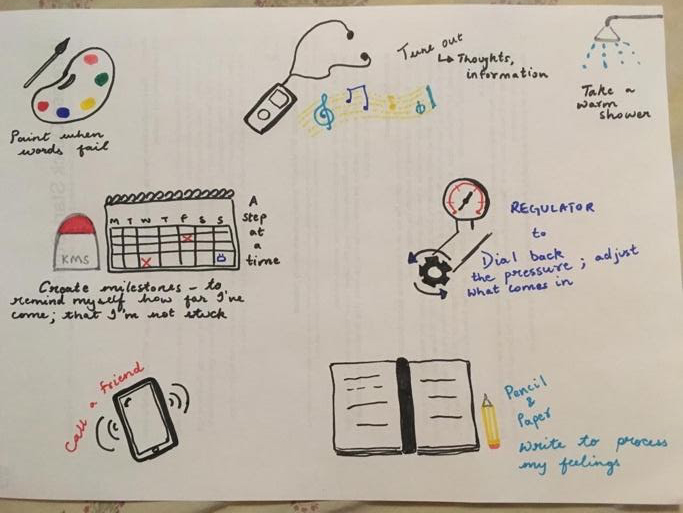 Paint when
words fail
Tune out
↳ Thoughts,
information
Take a
warm
shower
KMS
M T W T F S S
A
step
at
a
time
Create milestones – to
remind myself how far I've
come; that I'm not stuck
REGULATOR
to
Dial back
the pressure; adjust
what comes in
Call a friend
Pencil
&
Paper
Write to process
my feelings